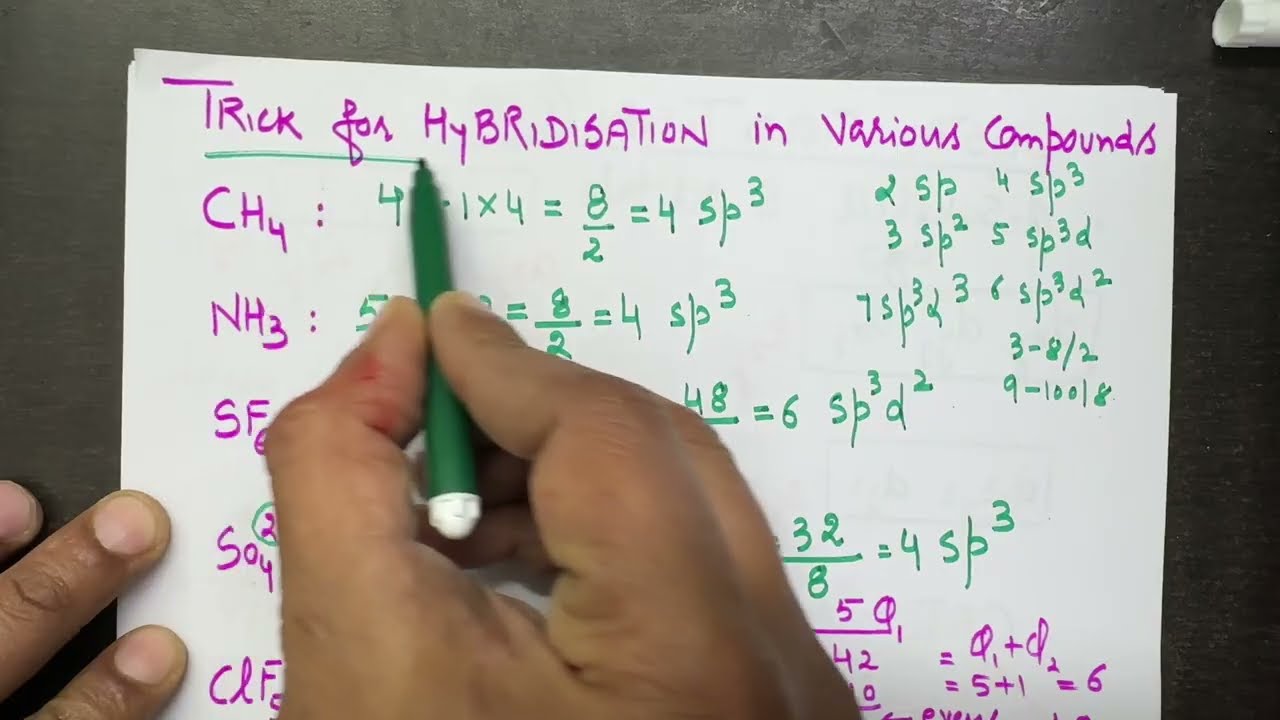 TRICK for HyBRIDISATION in Various Compounds
CH4 : 4 1×4 = 8/2 = 4 sp³
2 sp 4 sp³
3 sp² 5 sp³d
7 sp³d³ 6 sp³d²
3-8/2
9-100/8
NH3 : 5 = 8/2 = 4 sp³
SF6 48 = 6 sp³d²
SO4 2 32/8 = 4 sp³
5 Q₁
ClF 42 = Q₁+Q₂
= 5+1 = 6